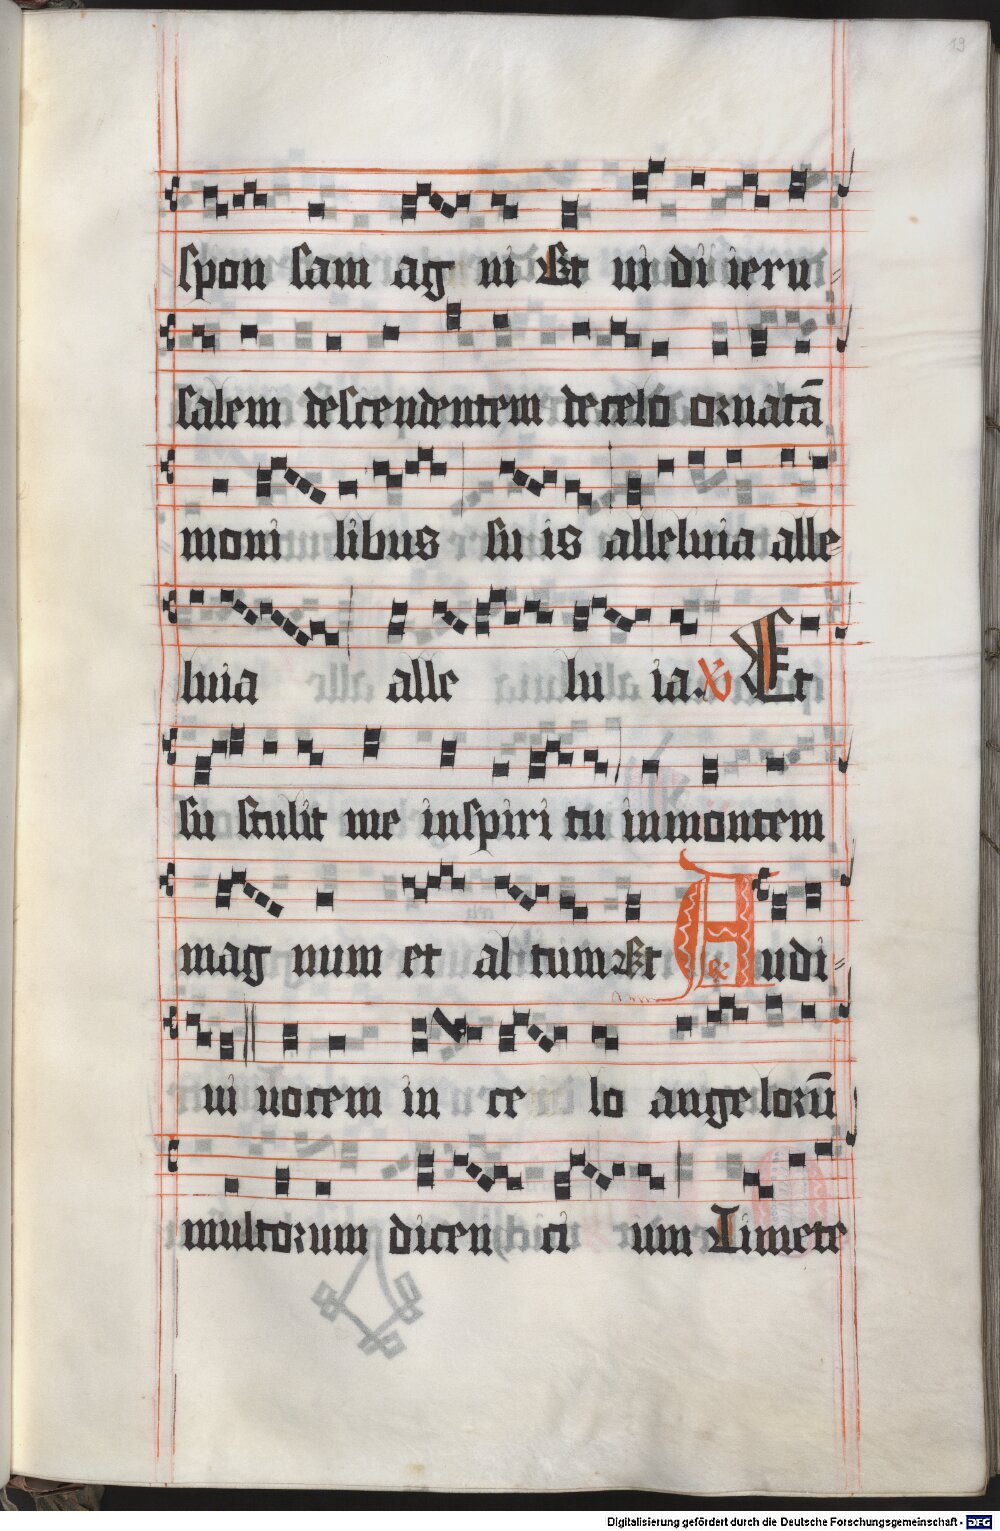 19
spon sam ag ni Et ui di ieru⸗
salem descendentem de celo ornatā
moni libus su is alleluia alle⸗
luia alle lu ia. V Et
su stulit me inspiri tu inmontem
mag num et al tum Et Audi⸗
ui uocem in ce lo angelorū
multorum dicen ci um Timete
Digitalisierung gefördert durch die Deutsche Forschungsgemeinschaft - DFG